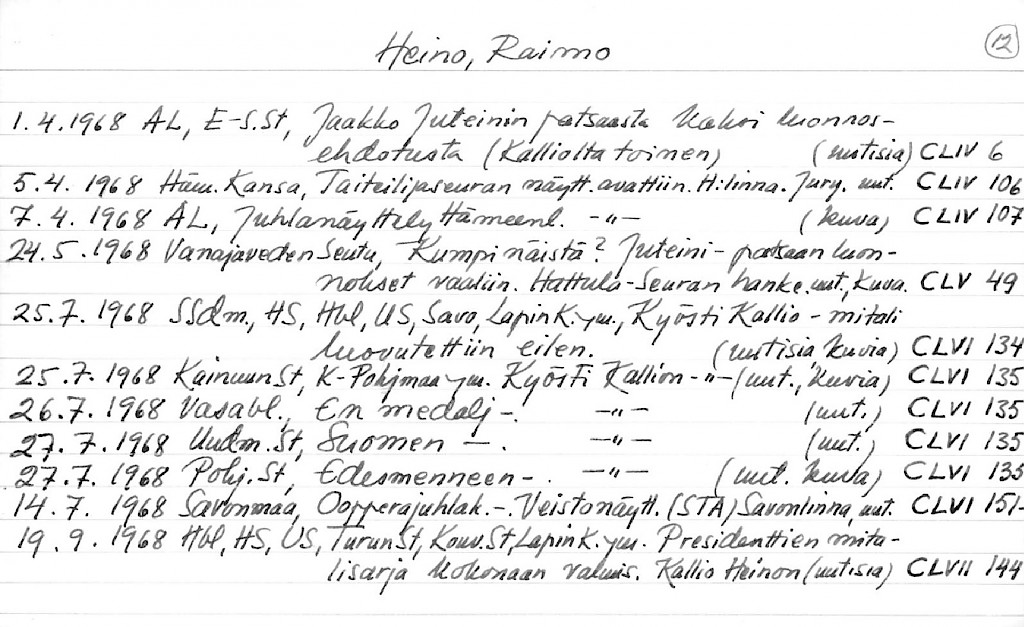 Heino, Raimo
12
1.4.1968 AL, E-S.St, Jaakko Juteinin patsaasta kaksi luonnos-
ehdotusta (Kalliolta toinen) (uutisia) CLIV 6
5.4. 1968 Häm. Kansa, Taiteilijaseuran näytt. avattiin. H:linna. Jury. uut. CLIV 106
7.4. 1968 AL, Juhlanäyttely Hämeenl. -"- (kuva) CLIV 107
24.5.1968 Vanajaveden Seutu, Kumpi näistä? Juteini-patsaan luon-
nokset vaaliin. Hattula-Seuran hanke. uut., kuva. CLV 49
25.7.1968 SSdm, HS, Hbl, US, Savo, Lapin K. ym., Kyösti Kallio-mitali
luovutettiin eilen. (uutisia kuvia) CLVI 134
25.7.1968 Kainuun St, K-Pohjmaa ym. Kyösti Kallion -"- (uut., kuvia) CLVI 135
26.7.1968 Vasabl., En medalj -. -"- (uut.) CLVI 135
27.7.1968 Uudm. St, Suomen -. -"- (uut.) CLVI 135
27.7.1968 Pohj. St, Edesmenneen -. -"- (uut. kuva) CLVI 135
14.7.1968 Savonmaa, Oopperajuhlak. -. Veistonäytt. (STA) Savonlinna, uut. CLVI 151-
19.9.1968 Hbl, HS, US, Turun St, Kouv. St, Lapin K. ym. Presidenttien mita-
lisarja kokonaan valmis. Kallio Heinon (uutisia) CLVII 144